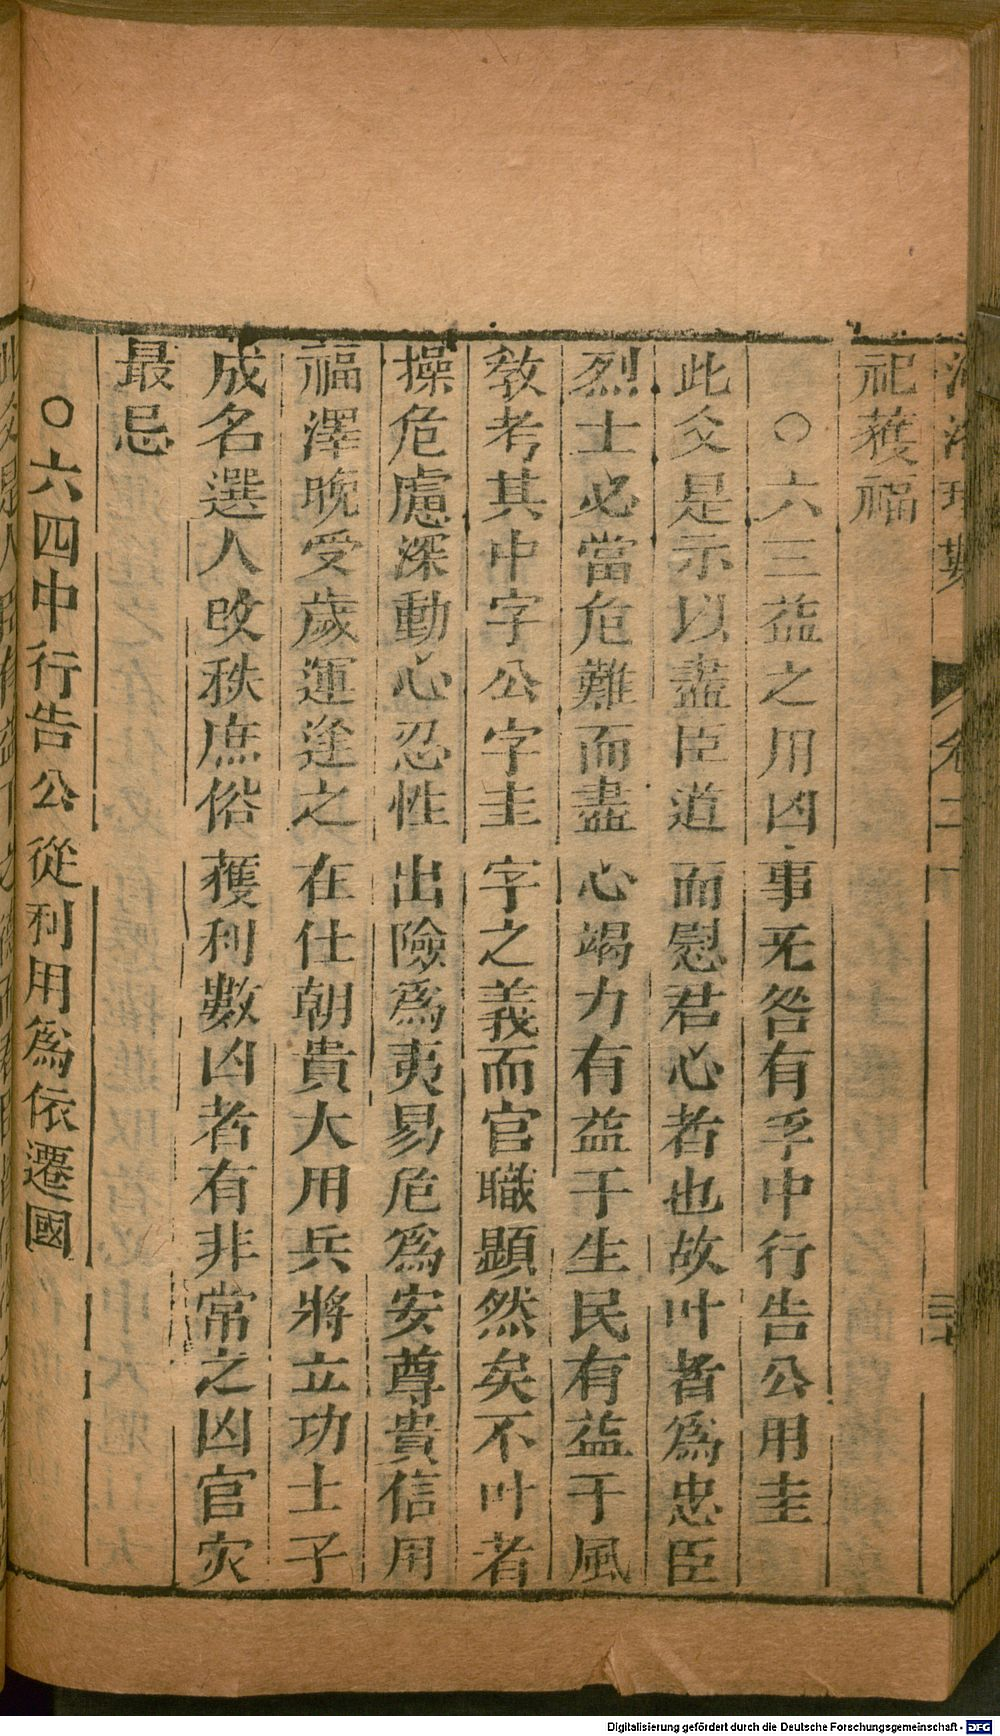 河洛理數 卷二
祀獲福
○六三益之用凶事无咎有孚中行告公用圭
此爻是示以盡臣道而慰君心者也故叶者爲忠臣
烈士必當危難而盡心竭力有益于生民有益于風
教考其中字公字圭字之義而官職顯然矣不叶者
操危慮深動心忍性出險爲夷易危爲安尊貴信用
福澤晚受歲運逢之在仕朝貴大用兵將立功士子
成名選人改秩庶俗獲利數凶者有非常之凶官灾
最忌
○六四中行告公從利用爲依遷國
Digitalisierung gefördert durch die Deutsche Forschungsgemeinschaft - DFG